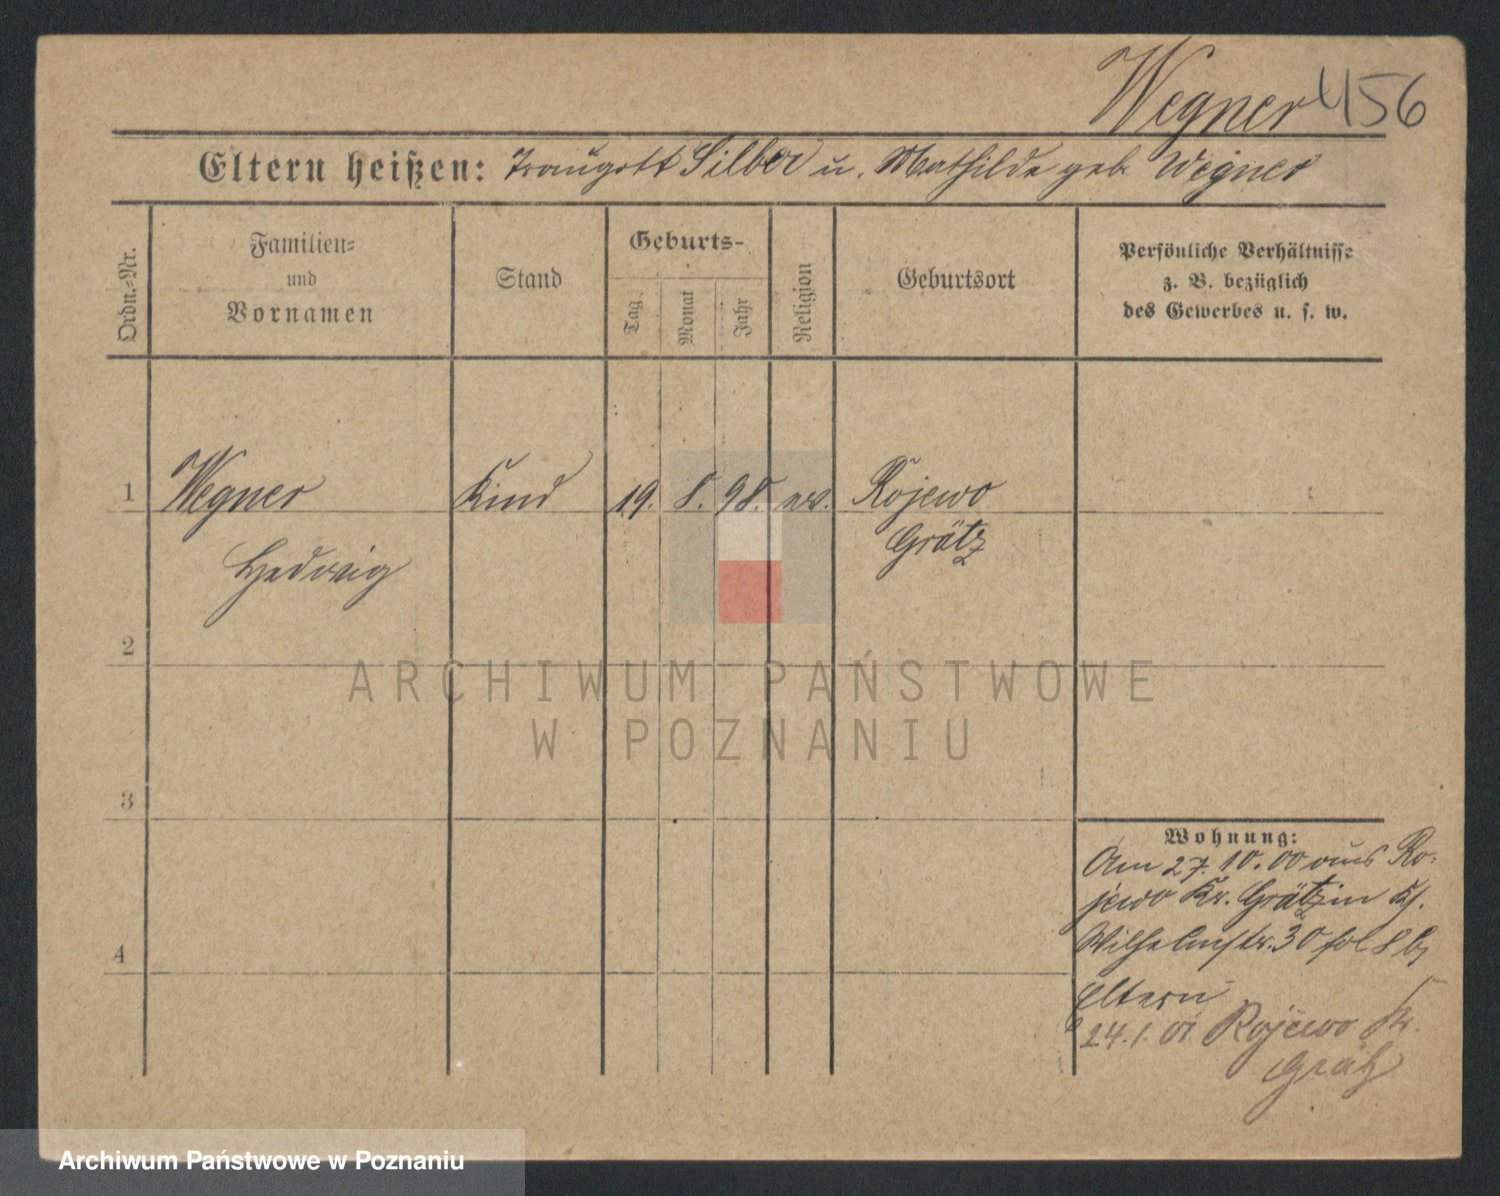 Wegner 456
Eltern heißen: Traugott Silber u. Mathilde geb. Wegner
Ordn.-Nr.
Familien-
und
Vornamen
Stand
Geburts-
Tag
Monat
Jahr
Religion
Geburtsort
Persönliche Verhältnisse
z. B. bezüglich
des Gewerbes u. s. w.
1 Wegner Kind 19. 8. 98. ev. Rojewo
Grätz
Hedwig
2
ARCHIWUM PAŃSTWOWE
W POZNANIU
3
Wohnung:
Am 27.10.00 aus Ro-
jewo Kr. Grätz in
Wilhelmstr. 30
4
Eltern
24.1.01 Rojewo Kr.
Grätz
Archiwum Państwowe w Poznaniu